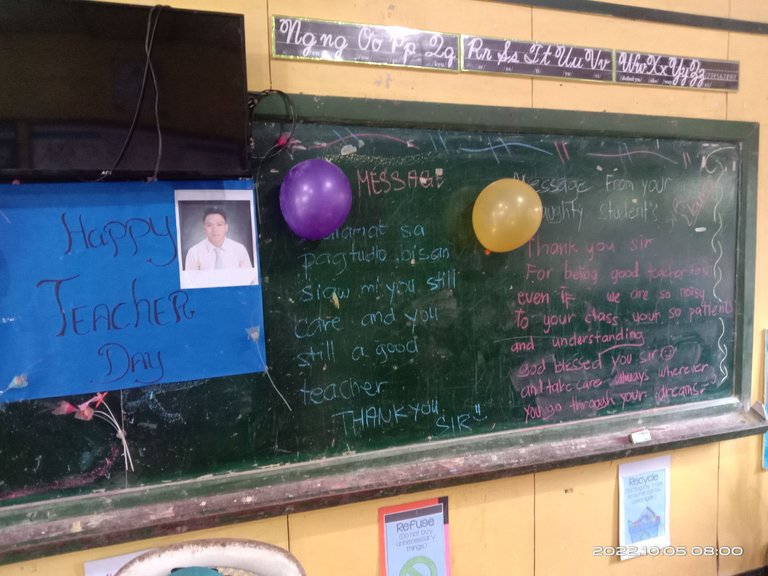 Ng ng Oo Pp Qq
Rr Ss Tt Uu Vv
Ww Xx Yy Zz
Happy
Teacher
Day
MESSAGE
sa
pagtudlo bisan
siaw mi you still
care and you
still a good
teacher
THANK YOU
SIR!!
Message From your
Student's
Thank you sir
For being good teacher
even if we are so noisy
To your class your so patient
and understanding
God blessed you sir
and take care always wherever
you go through your dreams.
Refuse
(Do not buy
unnecessary
things.)
Recycle
2022.10.05 08:00